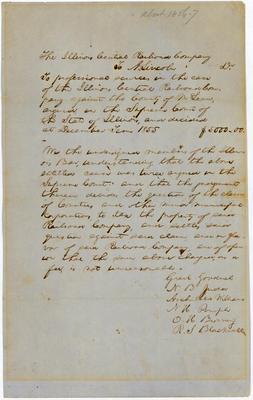 about 1856-7
The Illinois Central Railroad Company
To A. Lincoln Dr.
To professional services in the case
of the Illinois Central Railroad Com-
pany against the County of McLean,
argued in the Supreme Court of
the State of Illinois, and decided
at December Term 1855 $5000.00.
We the undersigned members of the Illi-
nois Bar, understanding that the above
entitled cause was twice argued in the
Supreme Court; and that the judgment
therein decided the question of the claim
of Counties, and other minor municipal
corporations to tax the property of said
Railroad Company, and settled said
question against said claim, and in fa-
vor of said Railroad Company, are of opin-
ion that the sum above charged as a
fee, is not unreasonable.
Grant Goodrich
N. B. Judd
Archibald Williams
N. H. Purple
O. H. Browning
R. S. Blackwell